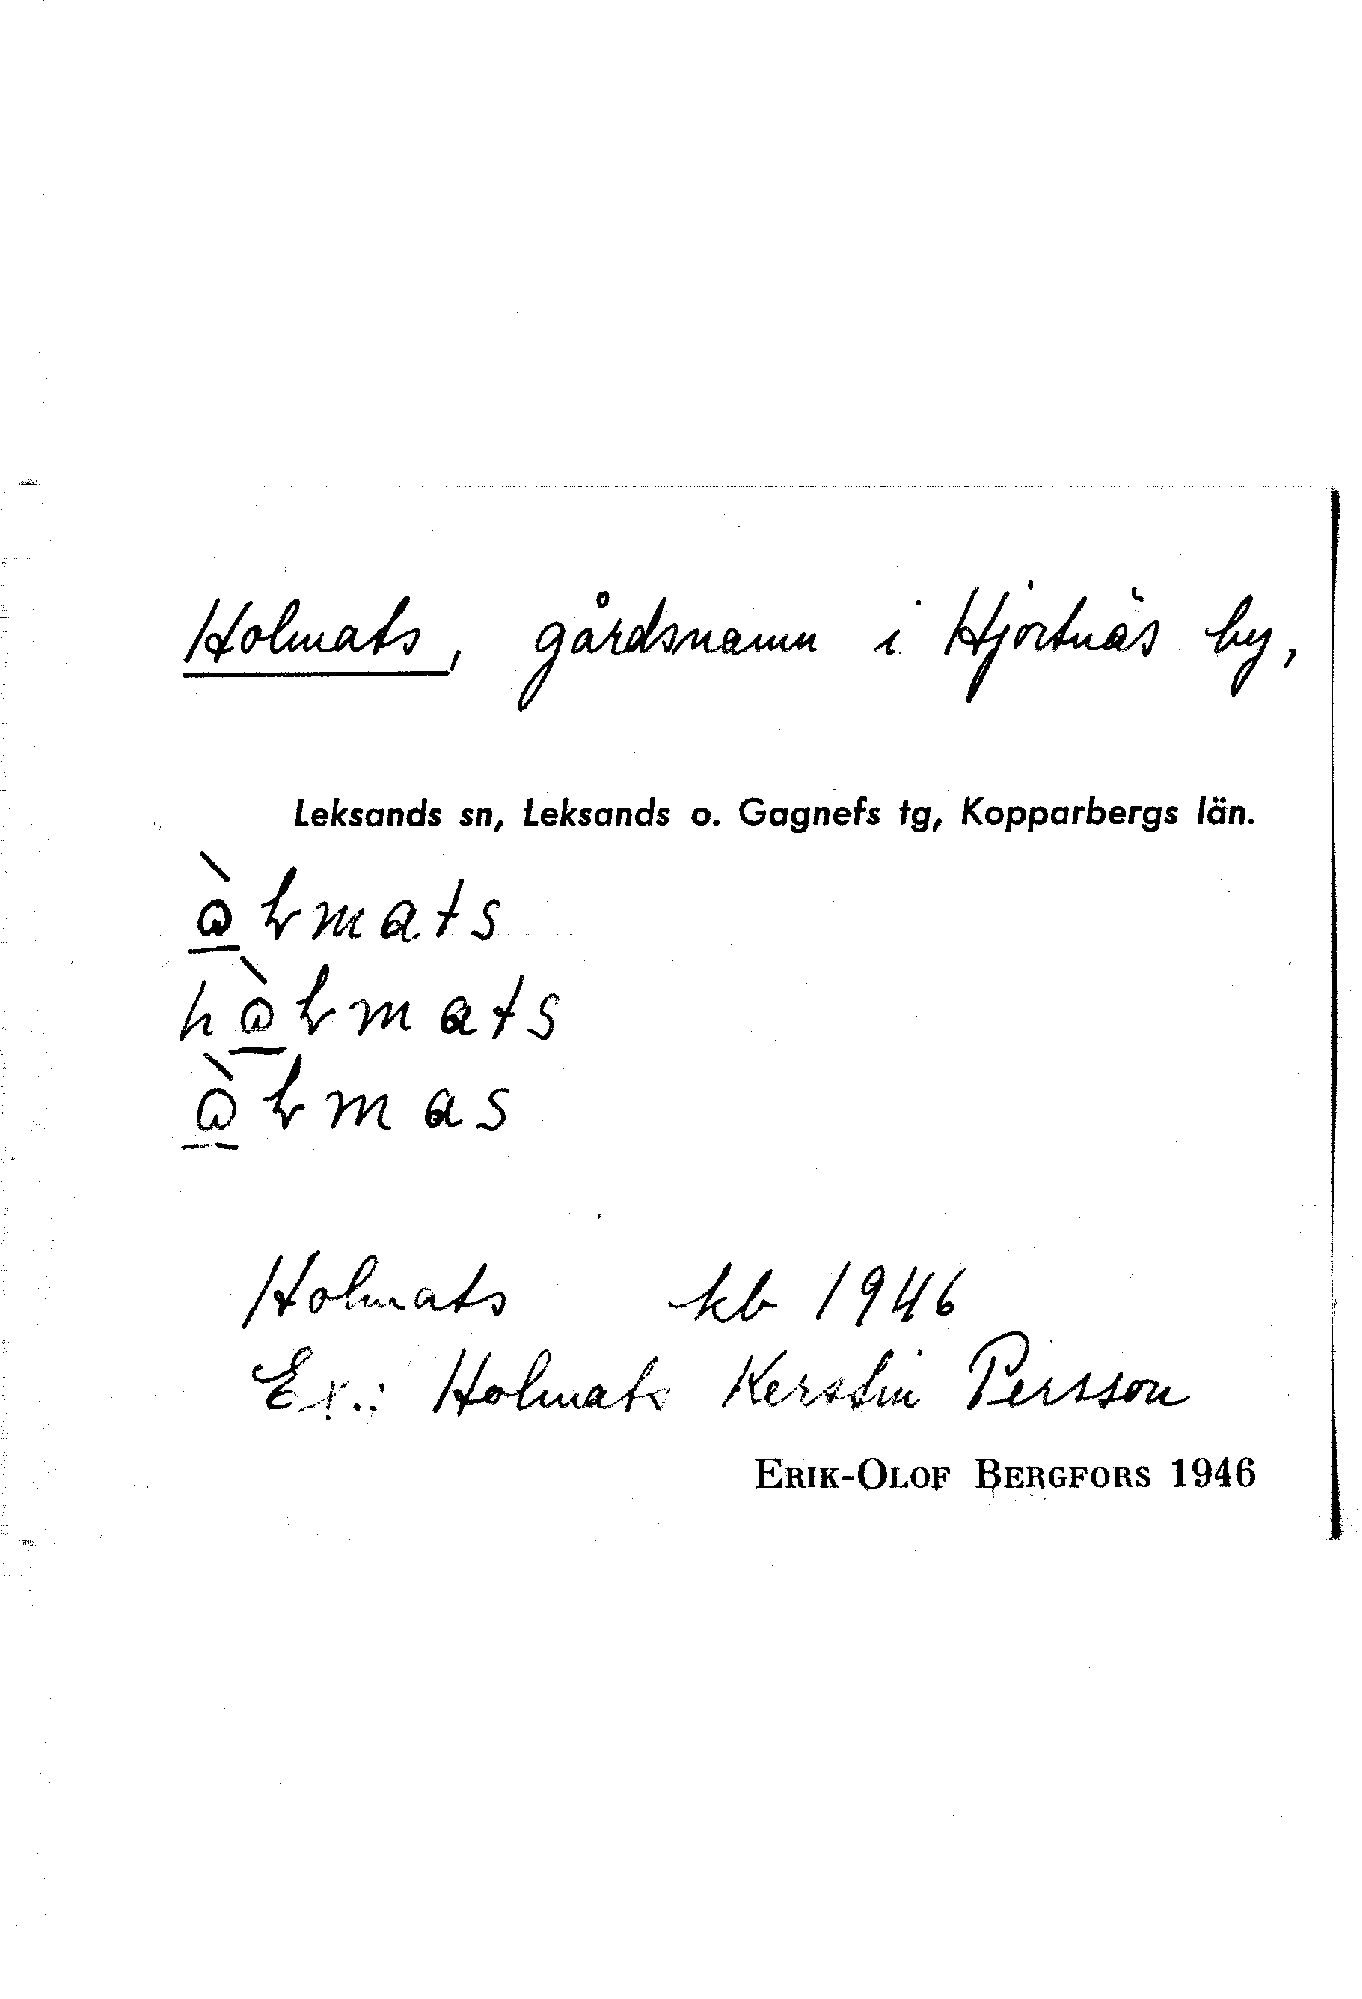 Holmats, gårdsnamn i Hjortnäs by,
Leksands sn, Leksands o. Gagnefs tg, Kopparbergs län.
Holmats kb 1946
Ex.: Holmats Kerstin Persson
ERIK-OLOF BERGFORS 1946